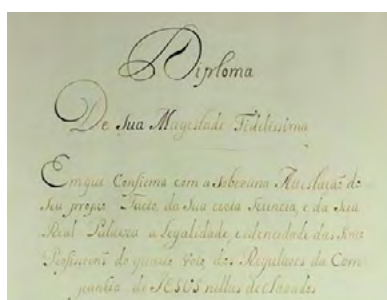 Diploma
De Sua Magestade Fidelissima
Em que Confirma com a Soberana Attestação do
Seu proprio Facto, da Sua certa Sciencia, e da Sua
Real Palavra a Legalidade, e identidade das
de quarto Voto, dos Regulares da Com
panhia de JESUS nellas declarados